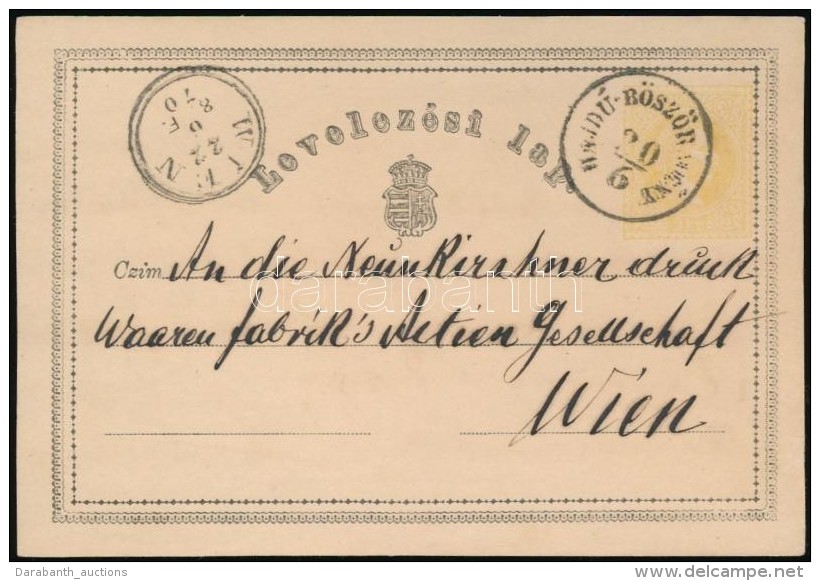 WIEN
22
6 F.
870
HAJDÚ-BÖSZÖRMÉNY
20/6
Levelezési lap.
Czim An die Neunkirshner druck
Waaren fabrik's Actien Gesellschaft
Wien
darabanth
Darabanth_auctions
delcampe.net